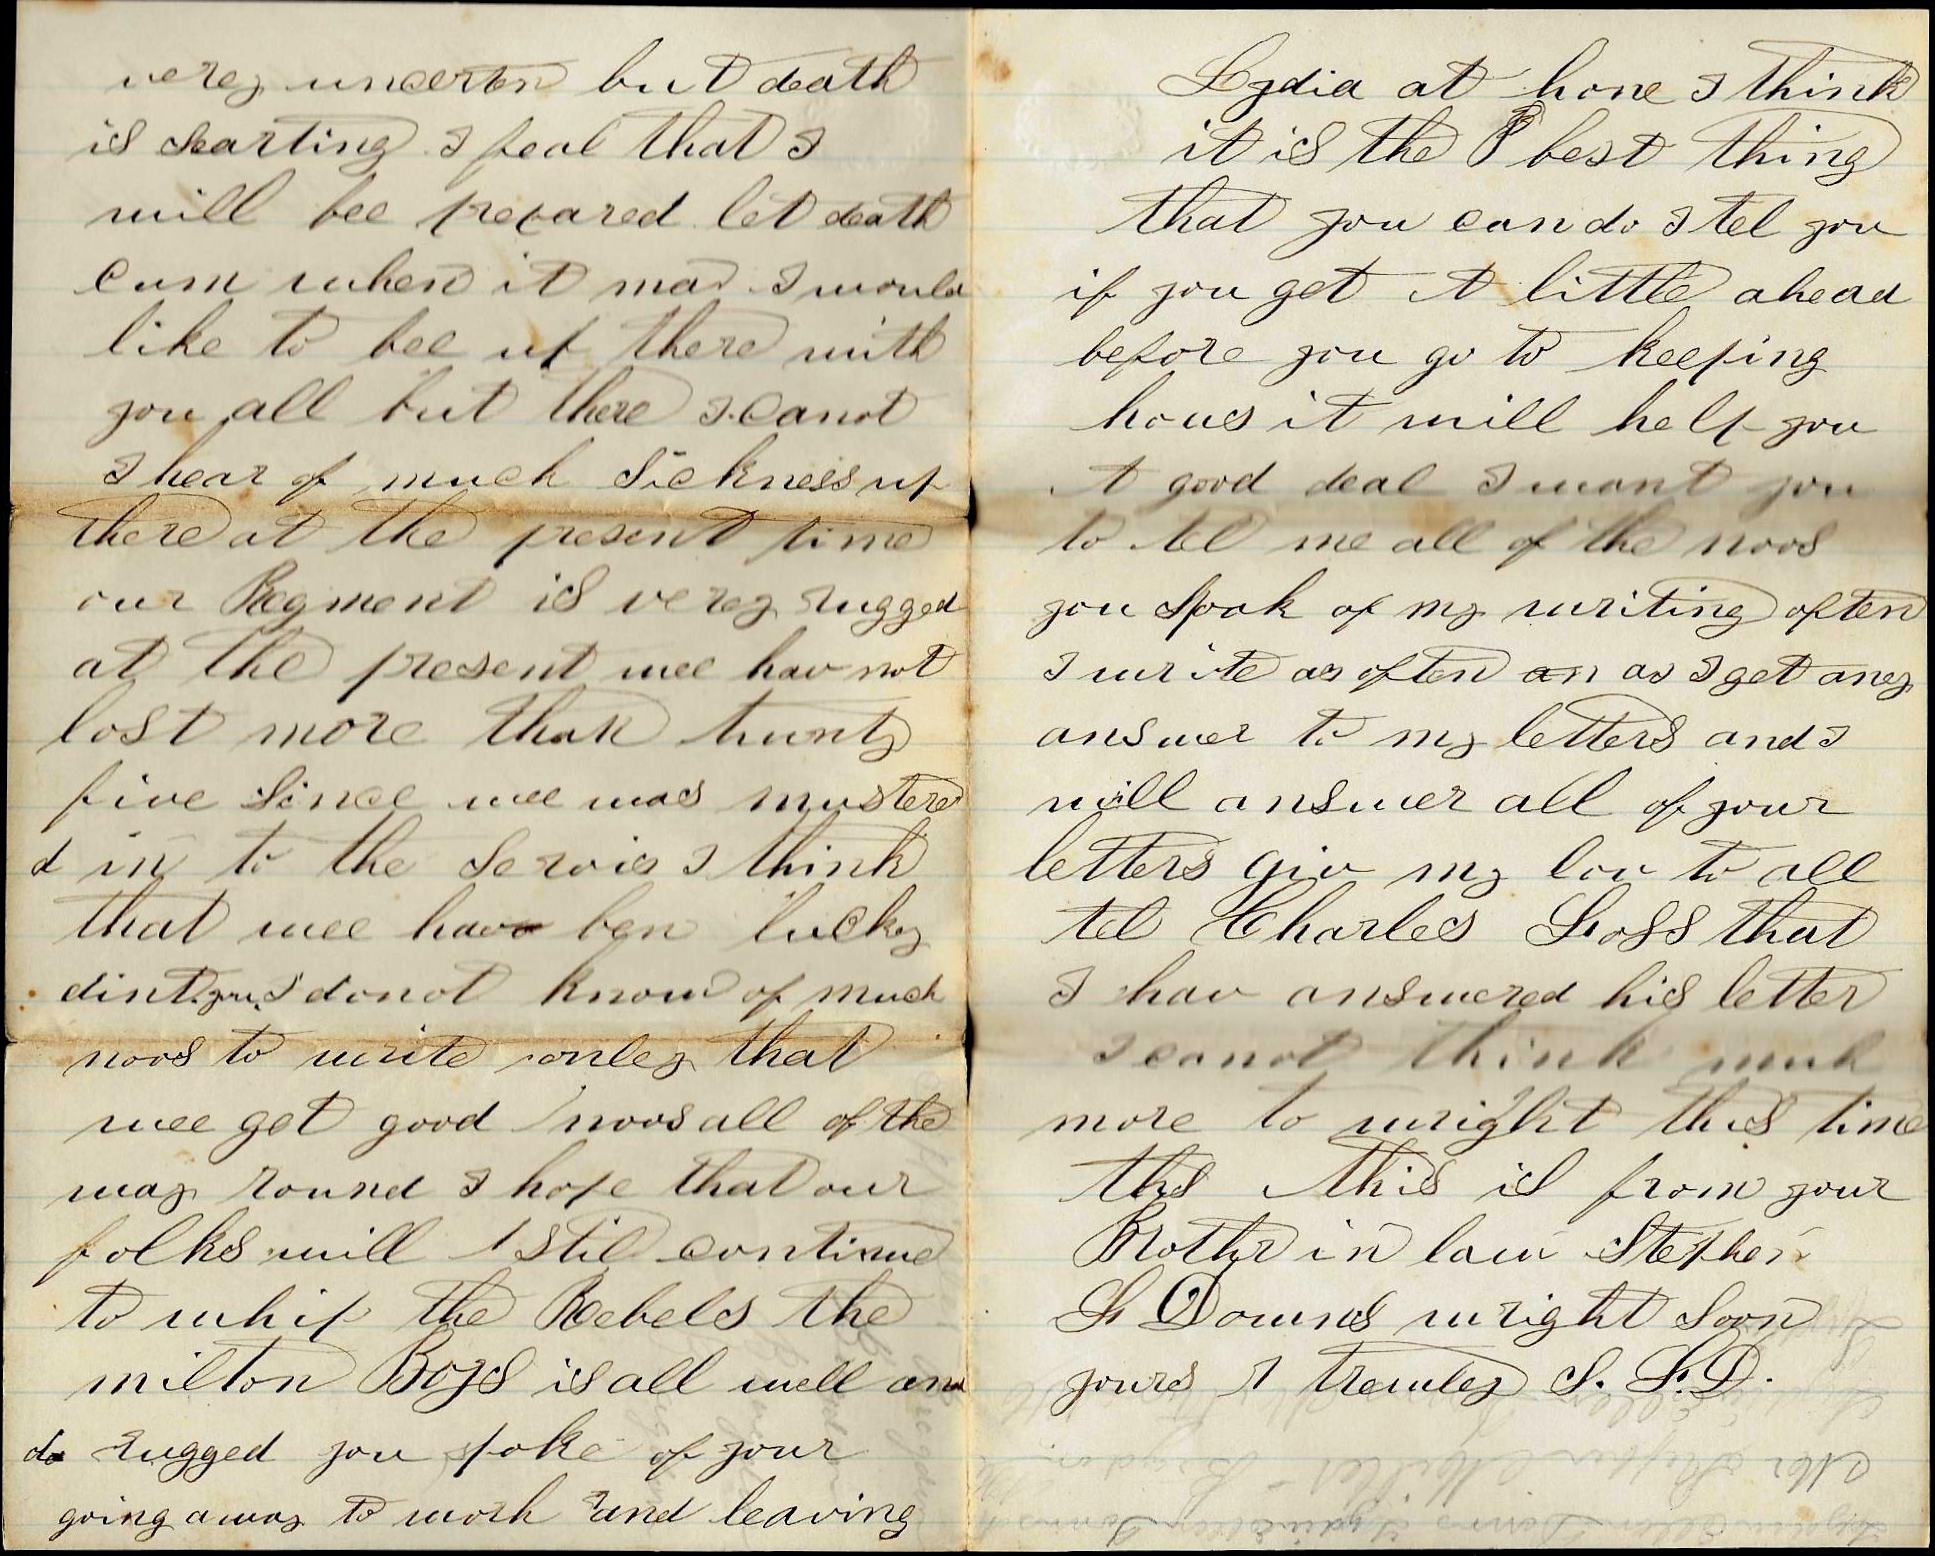 verey uncerten but death
is searting I feal that I
will bee prepared let death
cum when it ma I would
like to bee up there with
you all but there I canot
I hear of much Sickness up
there at the present time
our Regment is verey rugged
at the present wee hav not
lost more than twenty
five Since wee was mustere
d in to the Servis I think
that wee have ben lucky
dint you I donot know of much
noos to write onley that
wee get good noos all of the
way round I hope that our
folks will stil continue
to whip the Rebels the
milton Boys is all well and
rugged you spoke of your
going away to work and leaving
Lydia at hone I think
it is the best thing
that you can do I tel you
if you get A little ahead
before you go to keeping
hous it will help you
A good deal I want you
to tel me all of the noos
you Spok of my writing often
I write as often an as I get aney
answer to my letters and I
will answer all of your
letters giv my lov to all
tel Charles that
I hav answered his letter
I canot think muh
more to wright this time
ths this is from your
Brothr in law Stephen
Downs wright Soon
yours trewley S. D.